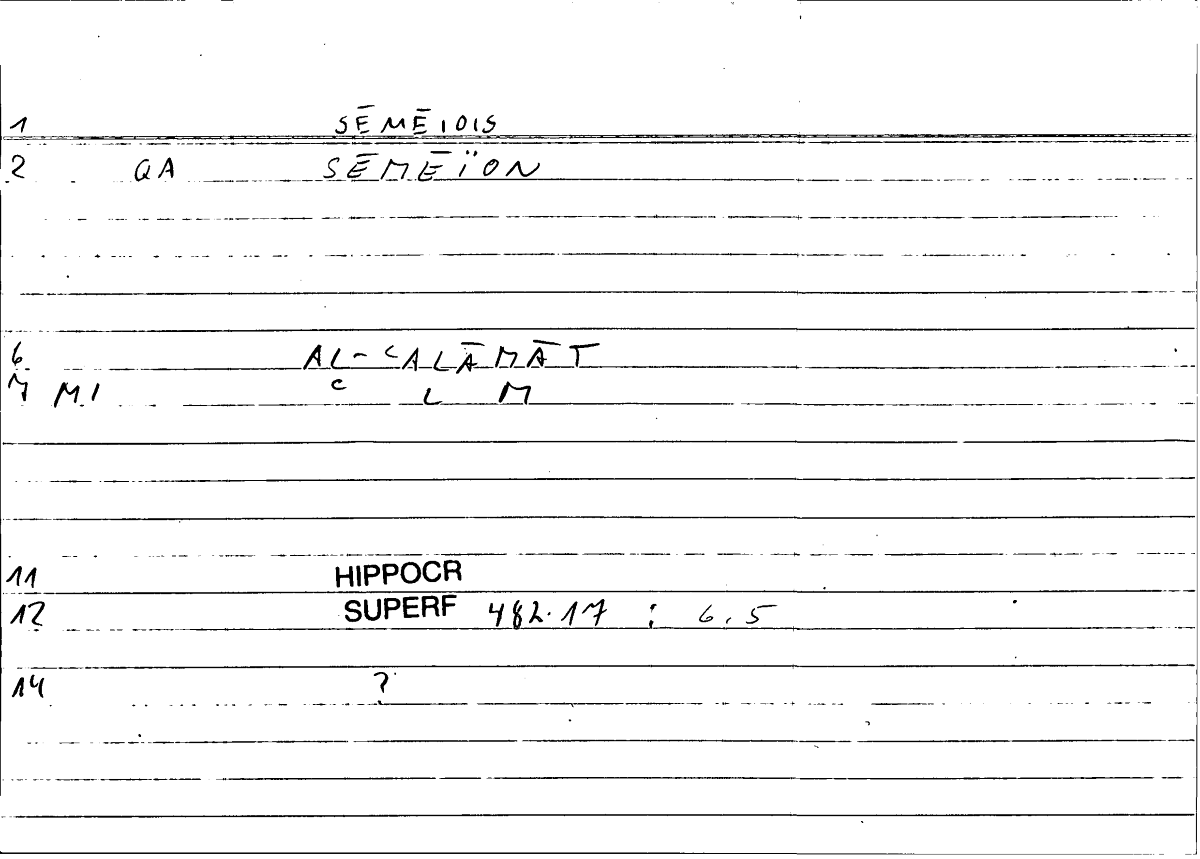 1 SĒMĒIOIS
2 QA SĒMĒÏON
6 AL-ʿALĀMĀT
7 MI ʿ L M
11 HIPPOCR
12 SUPERF 482.17 : 6.5
14 ?